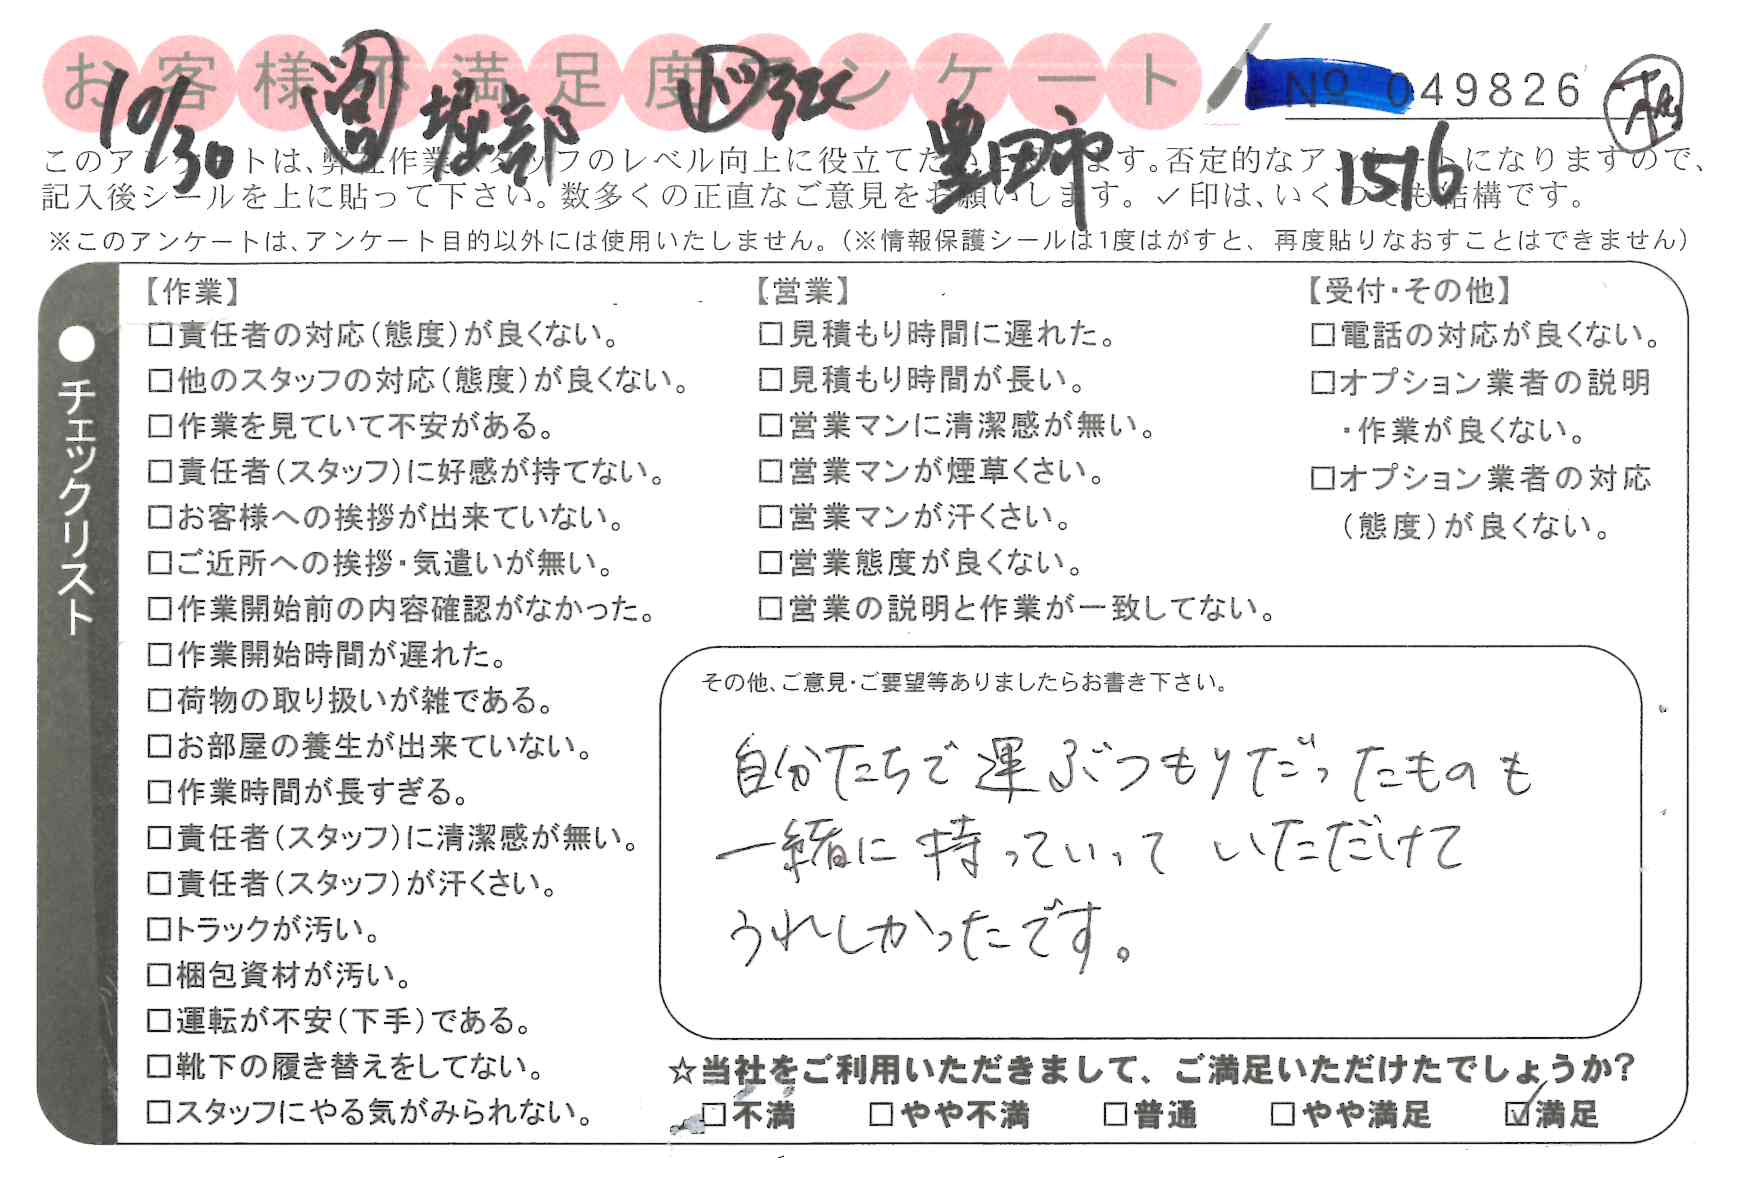 お客様不満足度アンケート
No 049826
10/30 堀部 豊田市 1516
このアンケートは、弊社作業スタッフのレベル向上に役立てたいと思います。否定的なアンケートになりますので、
記入後シールを上に貼って下さい。数多くの正直なご意見をお願いします。✓印は、いくつでも結構です。
※このアンケートは、アンケート目的以外には使用いたしません。(※情報保護シールは1度はがすと、再度貼りなおすことはできません)
●チェックリスト
【作業】
□責任者の対応(態度)が良くない。
□他のスタッフの対応(態度)が良くない。
□作業を見ていて不安がある。
□責任者(スタッフ)に好感が持てない。
□お客様への挨拶が出来ていない。
□ご近所への挨拶・気遣いが無い。
□作業開始前の内容確認がなかった。
□作業開始時間が遅れた。
□荷物の取り扱いが雑である。
□お部屋の養生が出来ていない。
□作業時間が長すぎる。
□責任者(スタッフ)に清潔感が無い。
□責任者(スタッフ)が汗くさい。
□トラックが汚い。
□梱包資材が汚い。
□運転が不安(下手)である。
□靴下の履き替えをしてない。
□スタッフにやる気がみられない。
【営業】
□見積もり時間に遅れた。
□見積もり時間が長い。
□営業マンに清潔感が無い。
□営業マンが煙草くさい。
□営業マンが汗くさい。
□営業態度が良くない。
□営業の説明と作業が一致してない。
【受付・その他】
□電話の対応が良くない。
□オプション業者の説明
・作業が良くない。
□オプション業者の対応
(態度)が良くない。
その他、ご意見・ご要望等ありましたらお書き下さい。
自分たちで運ぶつもりだったものも
一緒に持っていって いただけて
うれしかったです。
☆当社をご利用いただきまして、ご満足いただけたでしょうか?
□不満 □やや不満 □普通 □やや満足 ☑満足